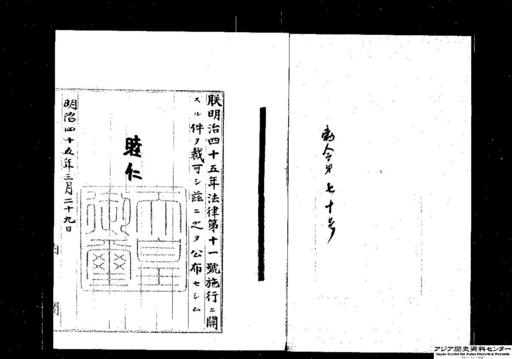 勅令第七十号
朕明治四十五年法律第十一號施行ニ關
スル件ヲ裁可シ茲ニ之ヲ公布セシム
睦仁
天皇御璽
明治四十五年三月二十九日
内閣
アジア歴史資料センター
Japan Center for Asian Historical Records